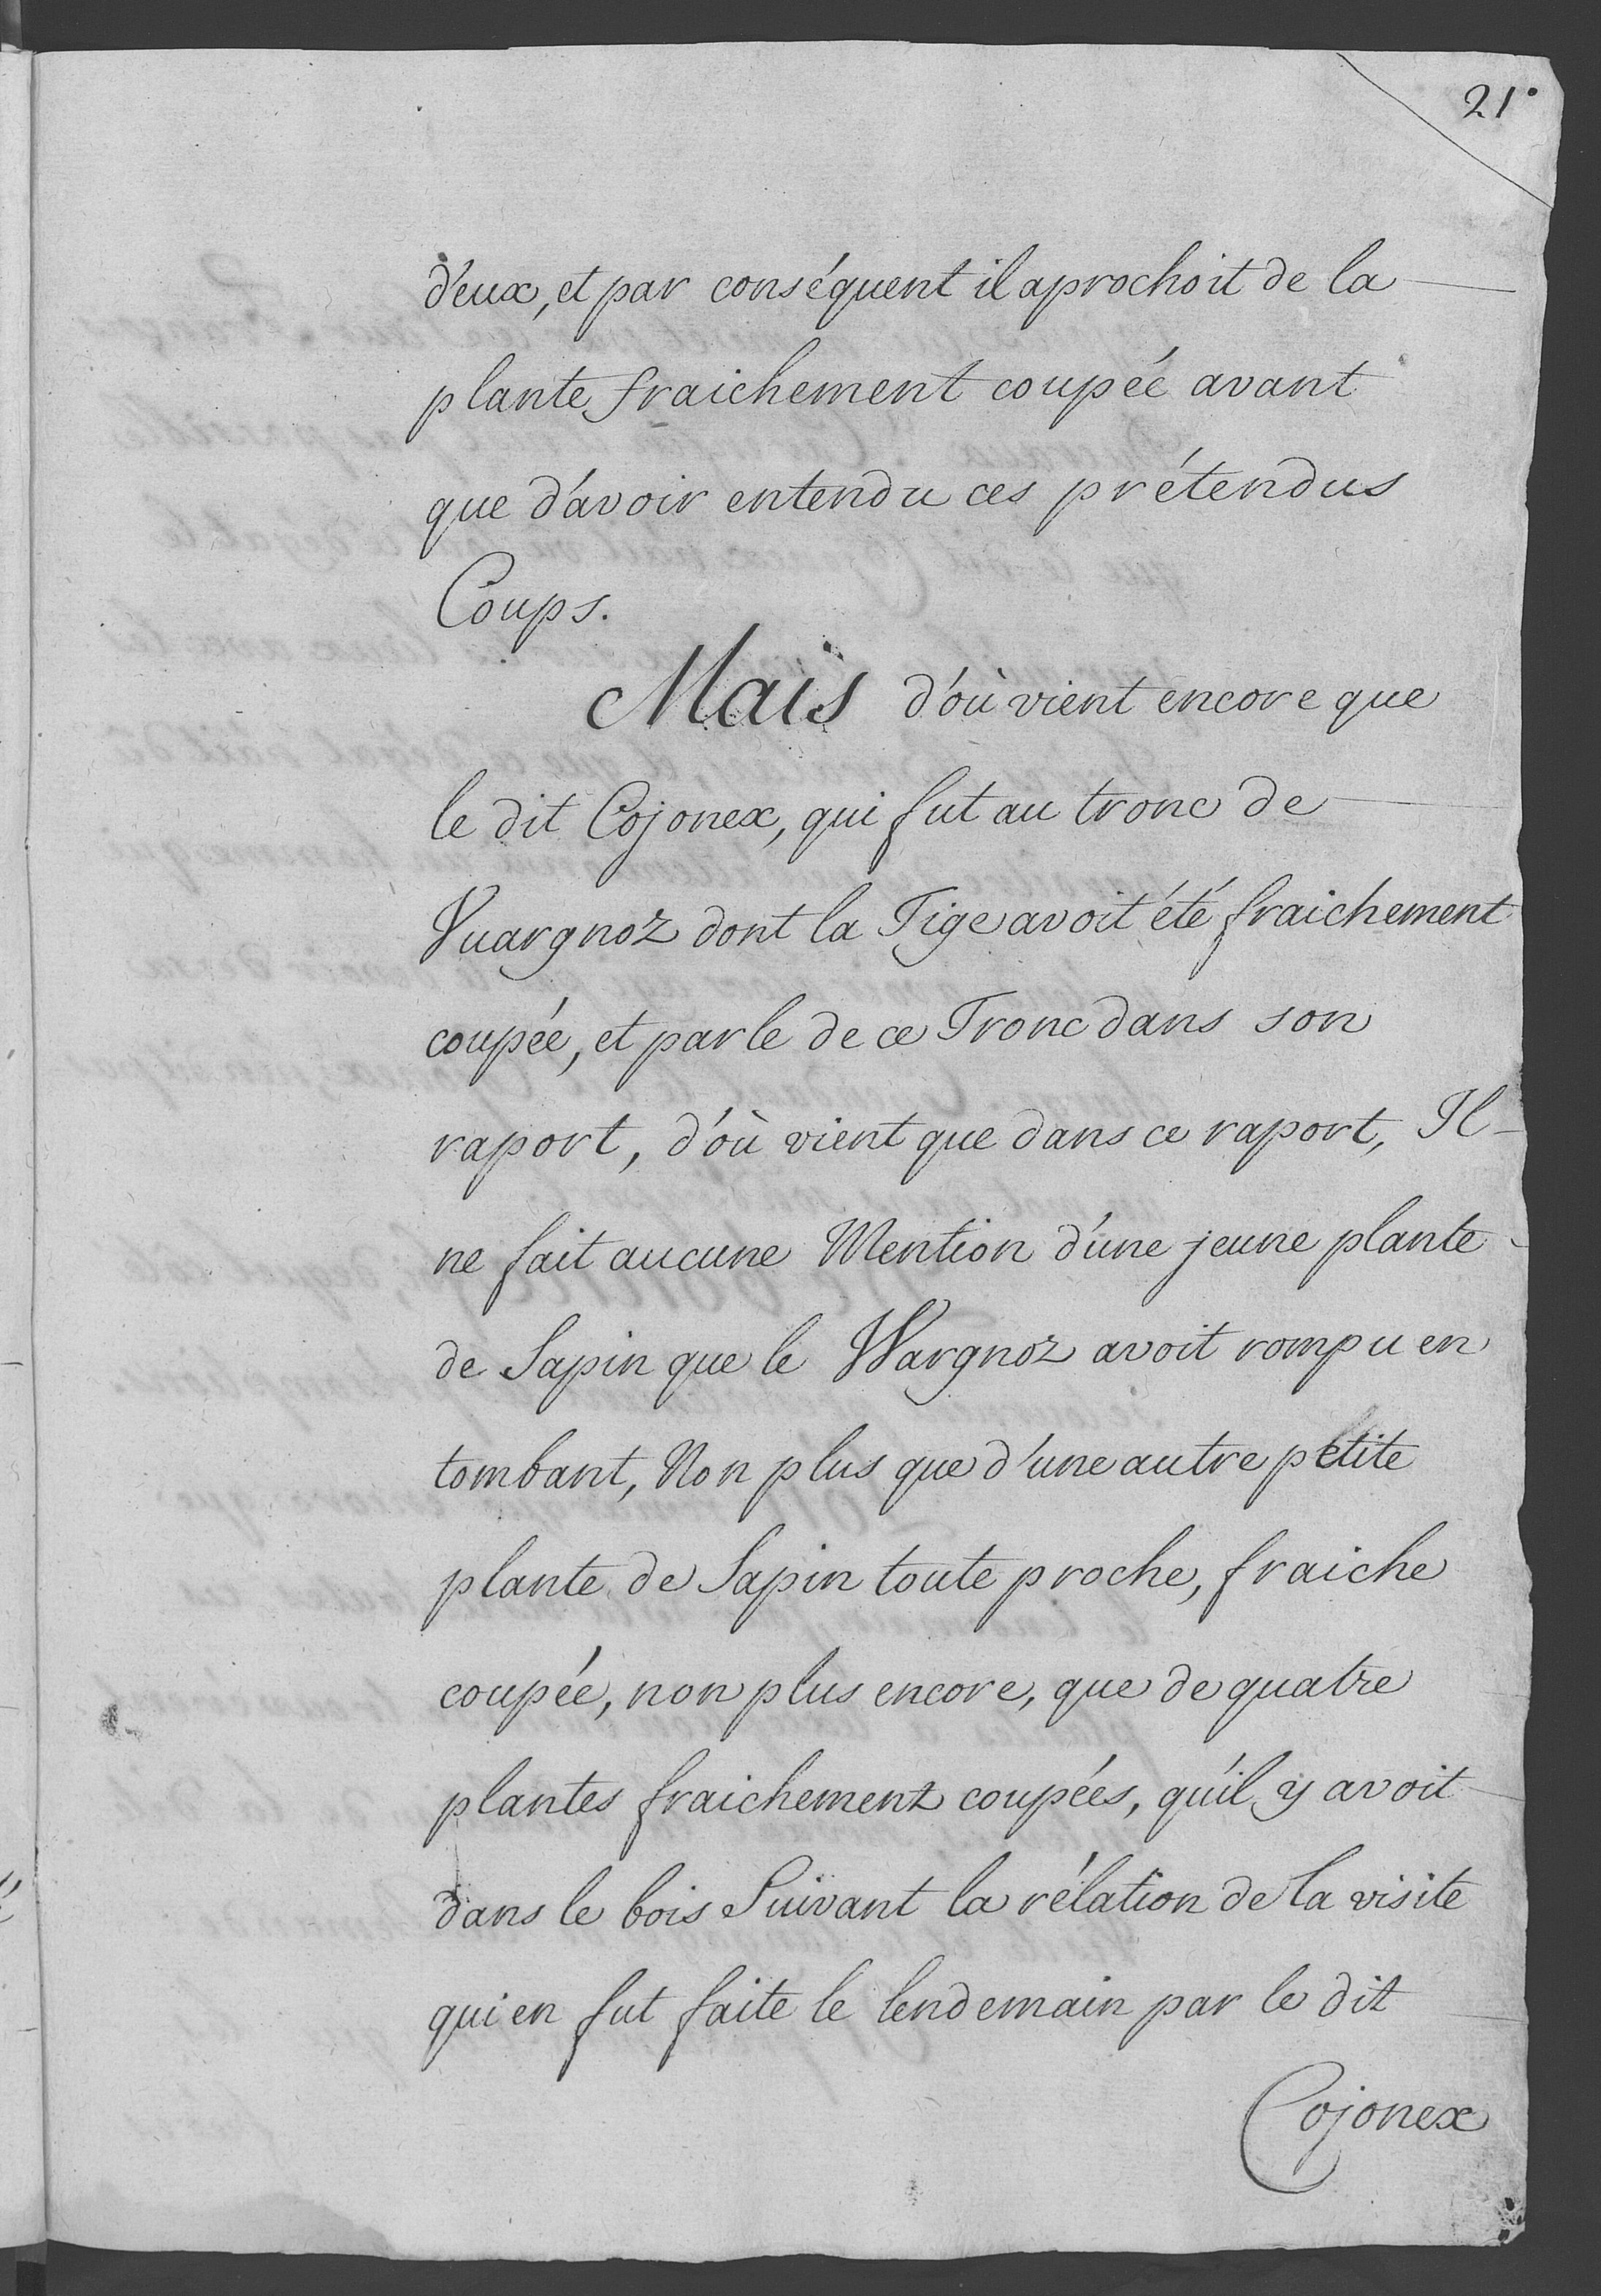 21.
d'eux, et par conséquent il aprochoit de la
plante fraichement coupée avant
que d'avoir entendu ces prétendus
Coups.
Mais d'où vient encore que
le dit Cojonex, qui fut au tronc de
Vuargnoz dont la Tige avoit été fraichement
coupée, et parle de ce Tronc dans son
raport, d'où vient que dans ce raport, Il
ne fait aucune Mention d'une jeune plante
de Sapin que le Wargnoz avoit rompu en
tombant, Non plus que d'une autre petite
plante de Sapin toute proche, fraiche
coupée, non plus encore, que de quatre
plantes fraichement coupées, qu'il y avoit
dans le bois Suivant la rélation de la visite
qui en fut faite le lendemain par le dit
Cojonex